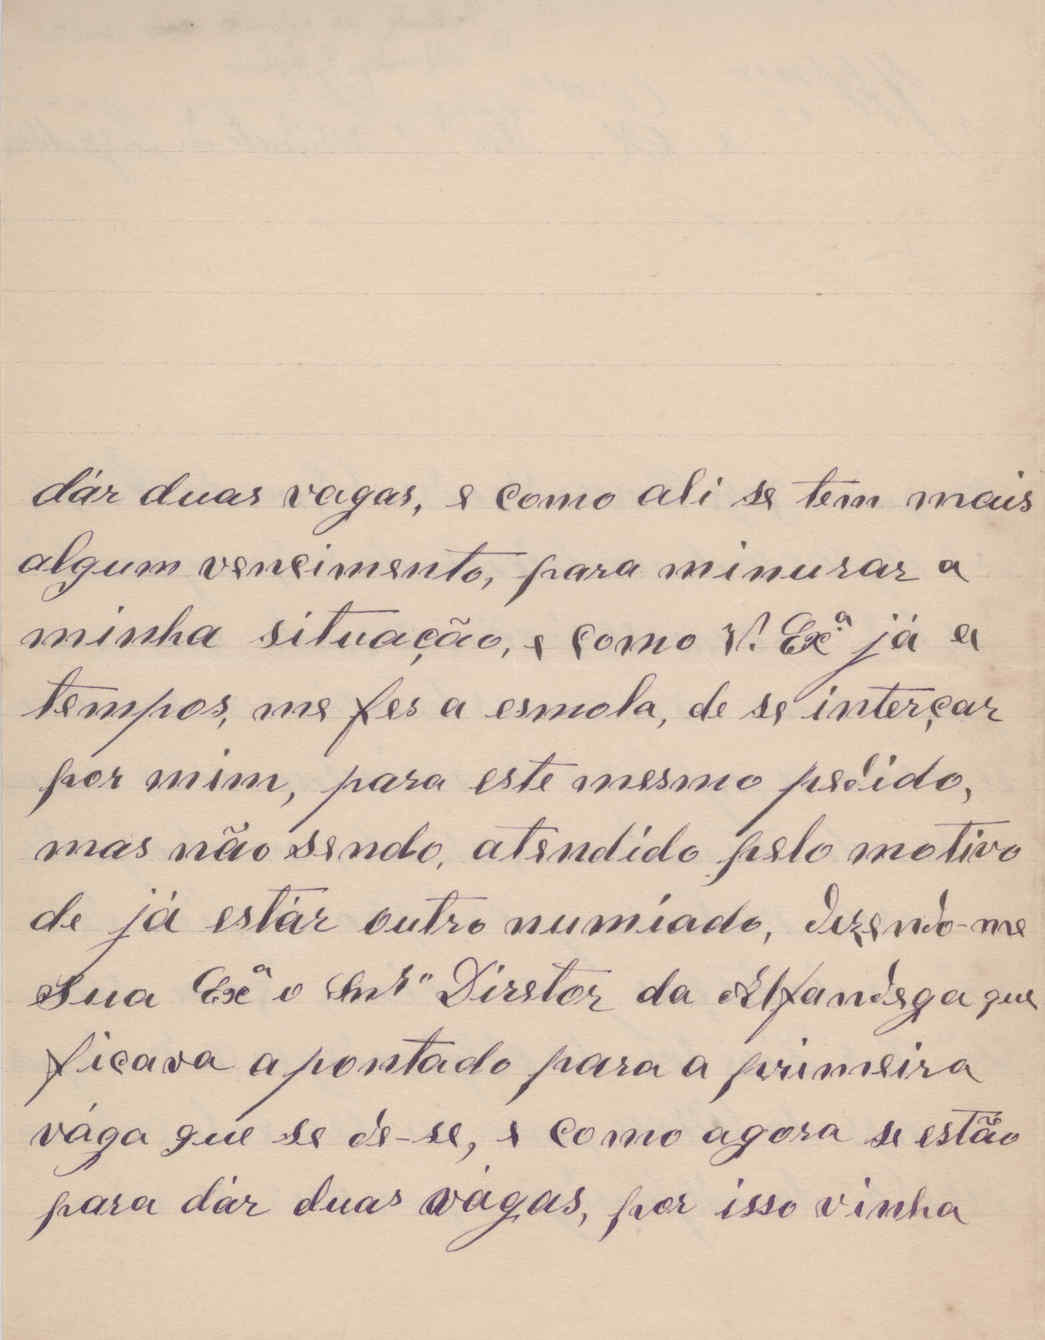 dár duas vagas, e como ali se tem mais
algum vencimento, para minurar a
minha situação, e como V. Exª já a
tempos, me fes a esmola, de se interçar
por mim, para este mesmo pedido,
mas não sendo, atendido pelo motivo
de já estár outro numiado, dizendo-me
Sua Exª o Snr Diretor da Alfandega que
ficava apontado para a primeira
vága que se de-se, e como agora se estão
para dár duas vágas, por isso vinha